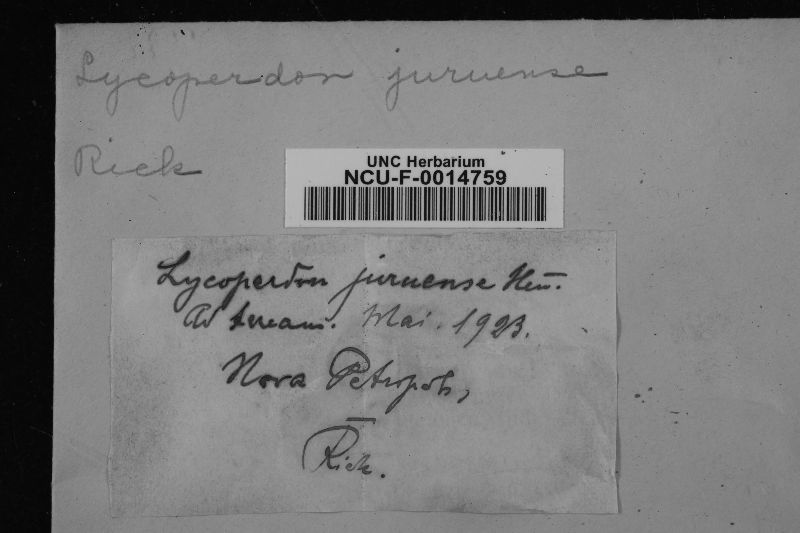 Lycoperdon juruense
Rick
UNC Herbarium
NCU-F-0014759
Lycoperdon juruense Hen̄.
Ad terram. Mai. 1923.
Nova Petropolis,
Rick.